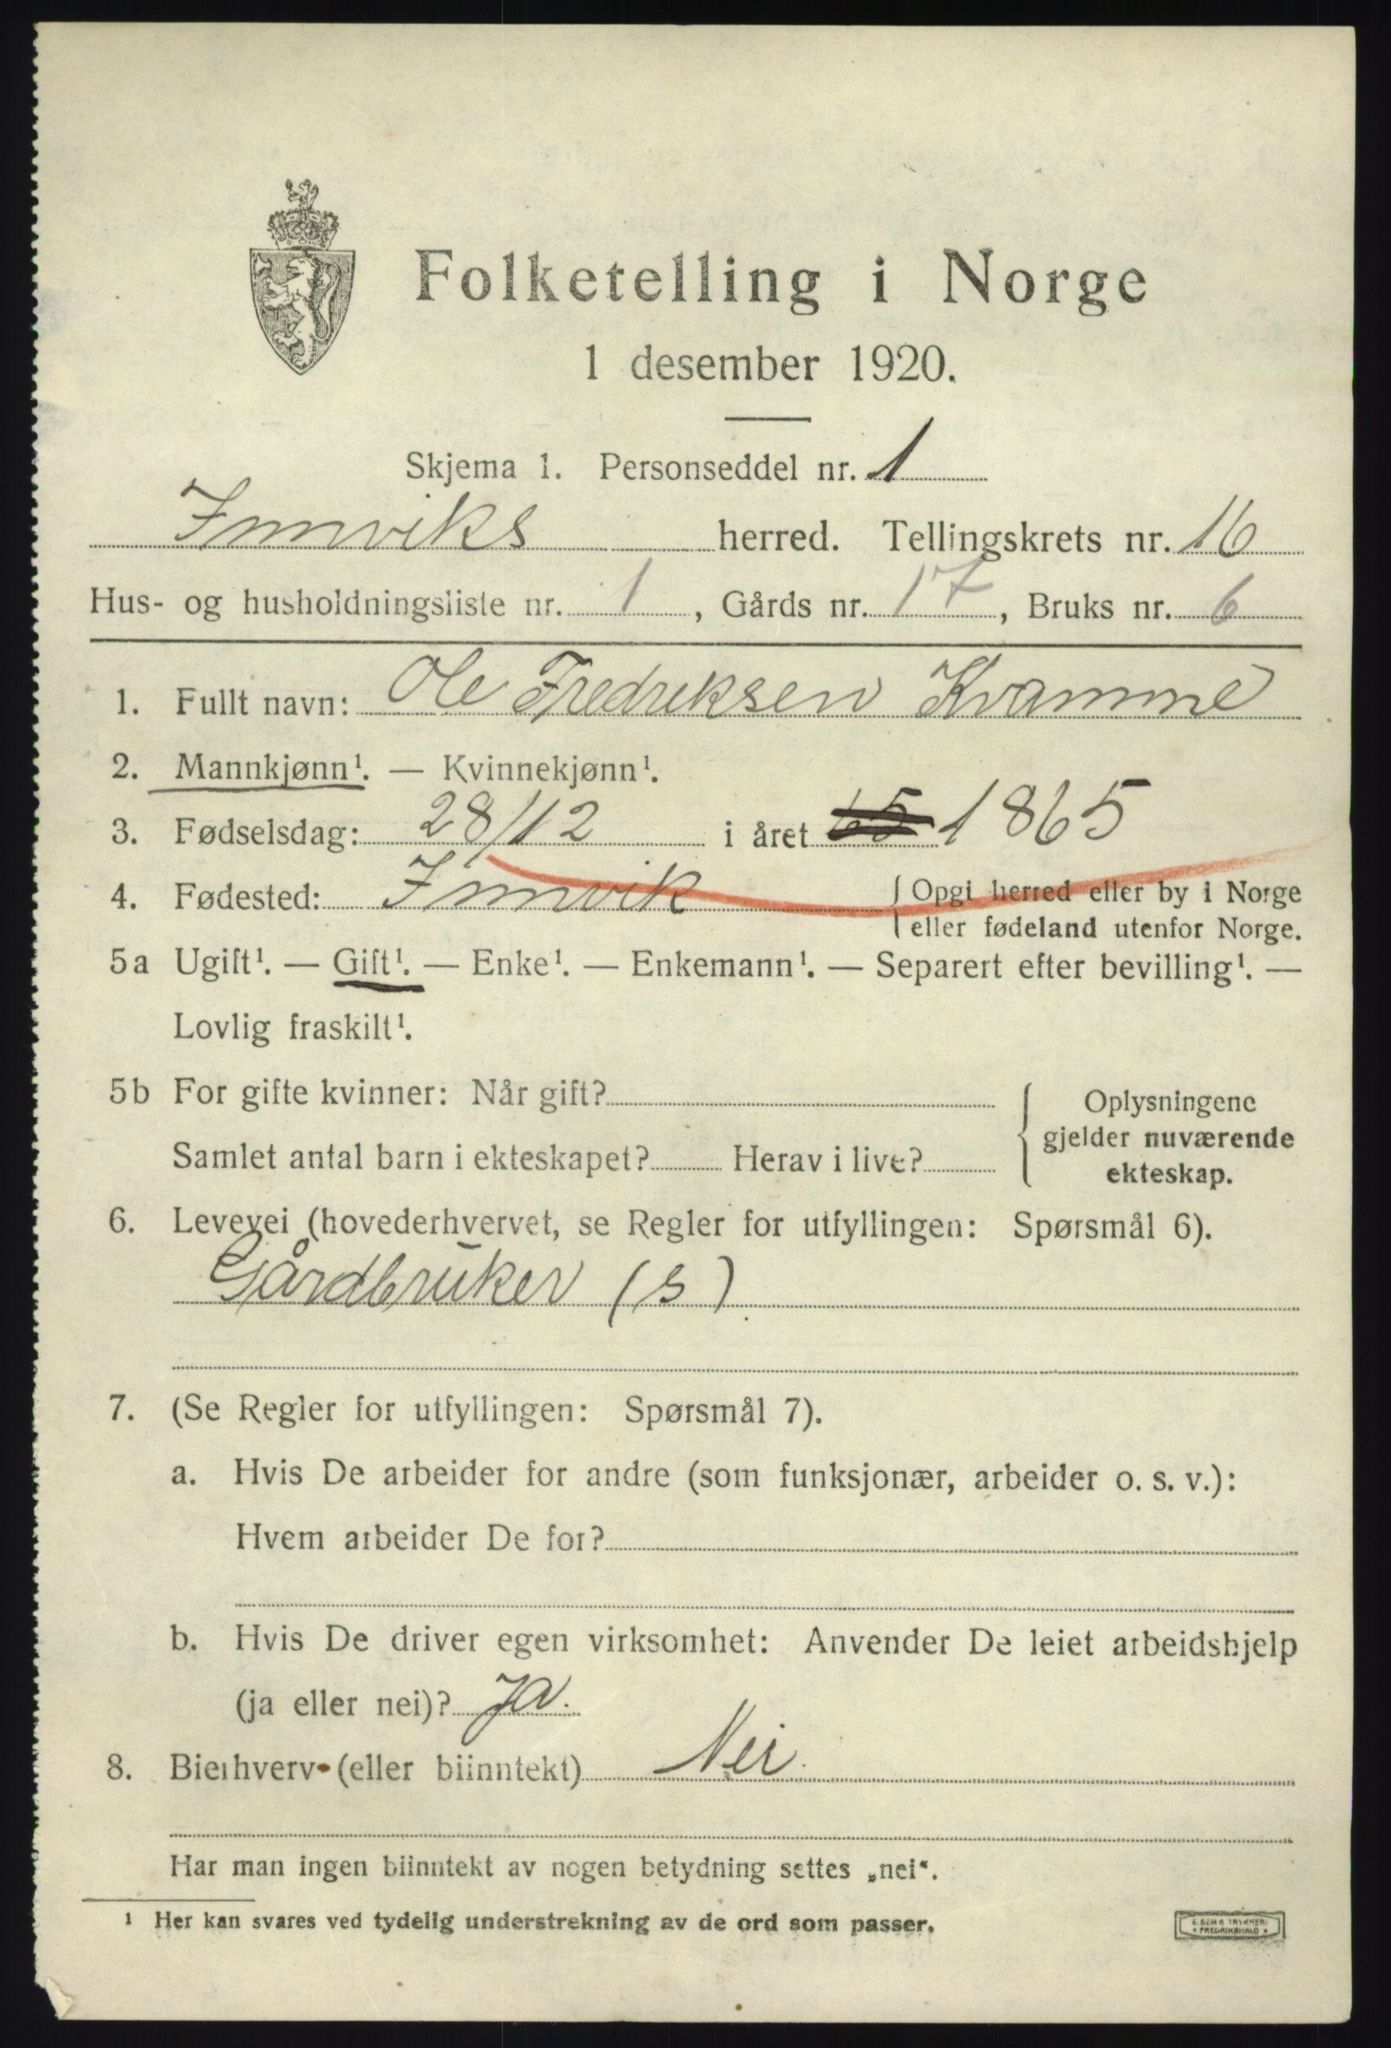 Folketelling i Norge
1 desember 1920.
Skjema 1. Personseddel nr. 1
Innviks herred. Tellingskrets nr. 16
Hus- og husholdningsliste nr. 1, Gårds nr. 17, Bruks nr. 6
1. Fullt navn: Ole Fredriksen Kvamme
2. Mannkjønn¹. — Kvinnekjønn¹.
3. Fødselsdag: 28/12 i året 65 1865
4. Fødested: Innvik { Opgi herred eller by i Norge
eller fødeland utenfor Norge.
5a Ugift¹. — Gift¹. — Enke¹. — Enkemann¹. — Separert efter bevilling¹. —
Lovlig fraskilt¹.
5b For gifte kvinner: Når gift?
Samlet antal barn i ekteskapet? Herav i live?
{ Oplysningene
gjelder nuværende
ekteskap.
6. Levevei (hovederhvervet, se Regler for utfyllingen: Spørsmål 6).
Gårdbruker (s)
7. (Se Regler for utfyllingen: Spørsmål 7).
a. Hvis De arbeider for andre (som funksjonær, arbeider o. s. v.):
Hvem arbeider De for?
b. Hvis De driver egen virksomhet: Anvender De leiet arbeidshjelp
(ja eller nei)? Ja.
8. Bierhverv (eller biinntekt) Nei.
Har man ingen biinntekt av nogen betydning settes „nei“.
¹ Her kan svares ved tydelig understrekning av de ord som passer.
E. SEM'S TRYKKERI
* FREDRIKSHALD *